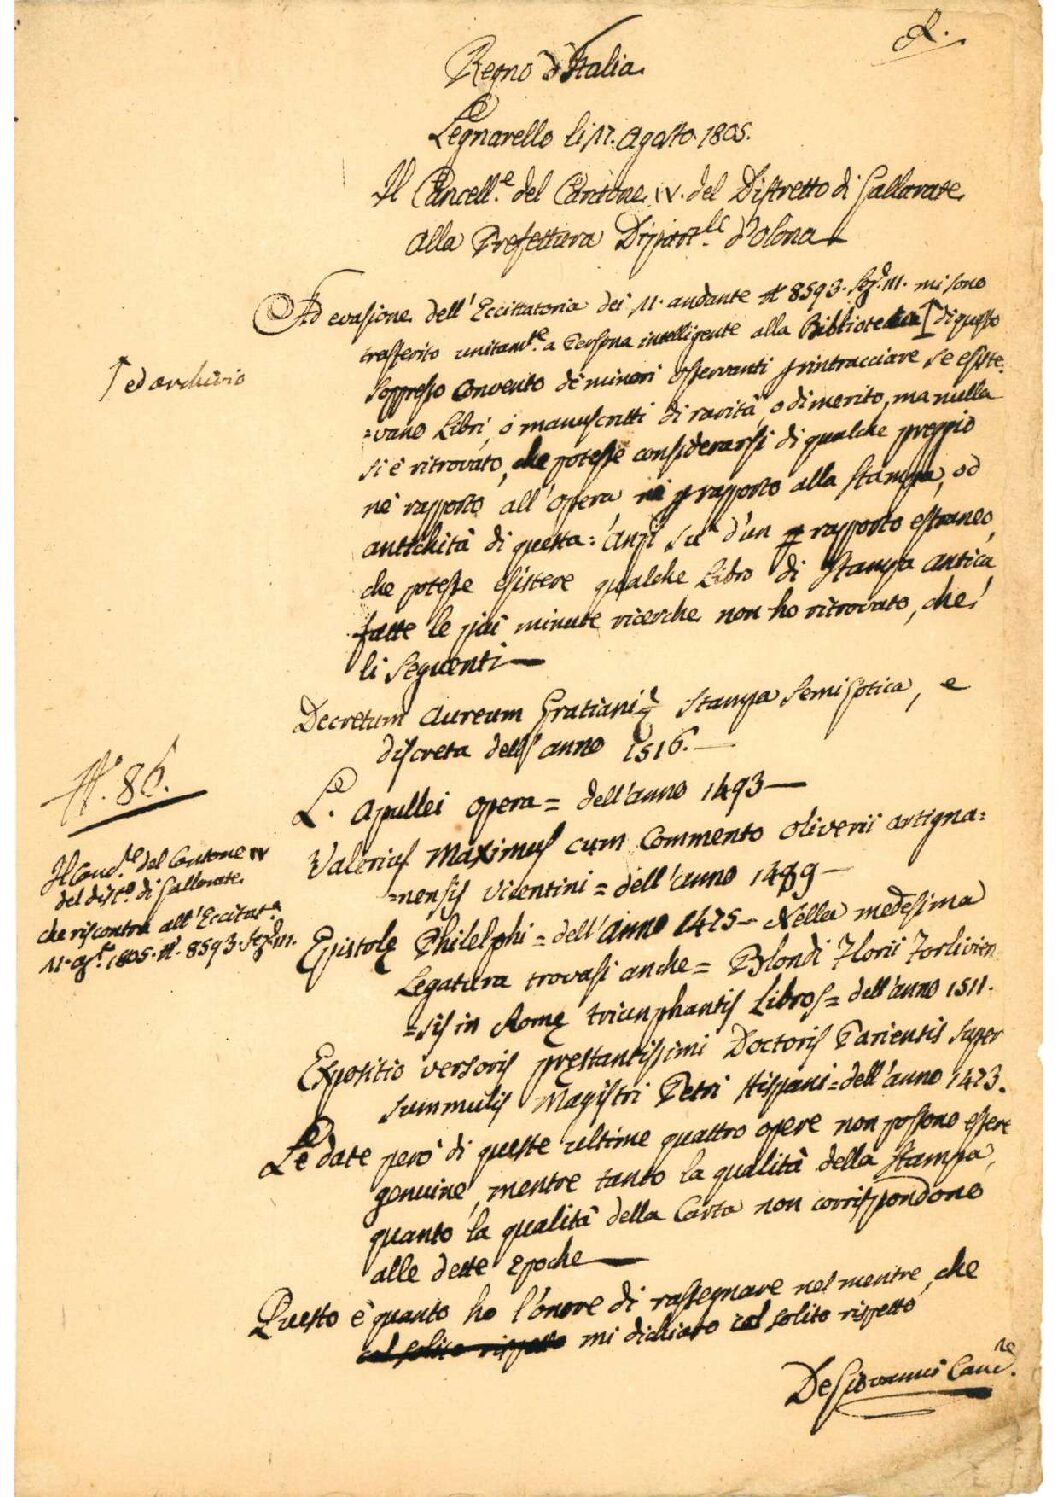 R.
Regno d'Italia
Legnarello li 17. Agosto 1805.
Il Cancell.e del Cantone IV. del Distretto di Gallarate
alla Prefettura Dipart.le d'Olona
Ad evasione dell'Eccitatoria dei 11. andante N. 8593. Sez.e III. mi sono
trasferito unitam.te a Persona intelligente alla Biblioteca di questo
↑ ed archivio
soppresso Convento de minori osservanti p rintracciare se esiste-
=vano Libri, o manuscritti di rarità, o di merito, ma nulla
si è ritrovato, che potesse considerarsi di qualche preggio
nè rapporto all'opera, nè p rapporto alla stampa, od
antichità di questa: Anzi d'un rapporto estraneo,
che potesse esistere qualche Libro di stampa antica
fatte le più minute ricerche non ho ritrovato, che
li seguenti —
Decretum Aureum Gratiani stampa semigotica, e
discreta dell'anno 1516. —
L. Apullei opera = dell'anno 1493 —
Valerius Maximus cum Commento Oliverii artigna=
=nensis vicentini = dell'anno 1489 —
Epistolę Philelphi = dell'anno 1475 — Nella medesima
Legatura trovasi anche = Blondi Florii Forlivien
=sis in Romę triunphantis Libros = dell'anno 1511.
Expositio versoris pręstantissimi Doctoris Parientis super
summulis Magistri Petri Hispani = dell'anno 1473.
Le date però di queste ultime quattro opere non possono essere
genuine, mentre tanto la qualità della stampa,
quanto la qualità della Carta non corrispondono
alle dette Epoche —
Questo è quanto ho l'onore di rassegnare nel mentre, che
col solito rispetto mi dichiaro col solito rispetto
DeGiovanni Canc.re
N. 86.
Il Canc.re del Cantone IV
del Dist.o di Gallarate
che riscontra all'Eccitat.a
11. ag.to 1805. N. 8593. Sez.e III.